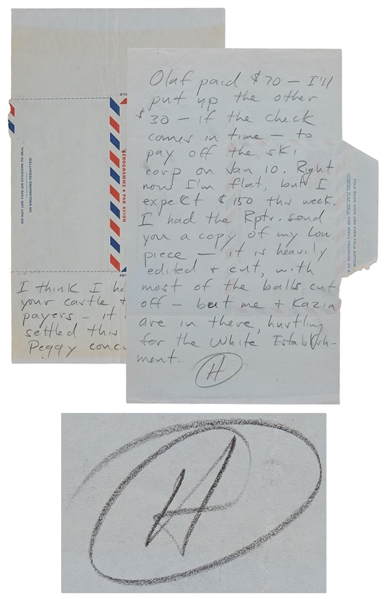 Olaf paid $70 — I'll
put up the other
$30 — if the check
comes in time — to
pay off the ski
corp on Jan 10. Right
now I'm flat, but I
expekt $150 this week.
I had the Rptr. send
you a copy of my Lou.
piece — it is heavily
edited & cut, with
most of the balls cut
off — but me & Kazin
are in there, hustling
for the White Establish-
ment.
H
I think I
your castle
payers — it
settled this
Peggy
AEROGRAMME PAR AVION
H